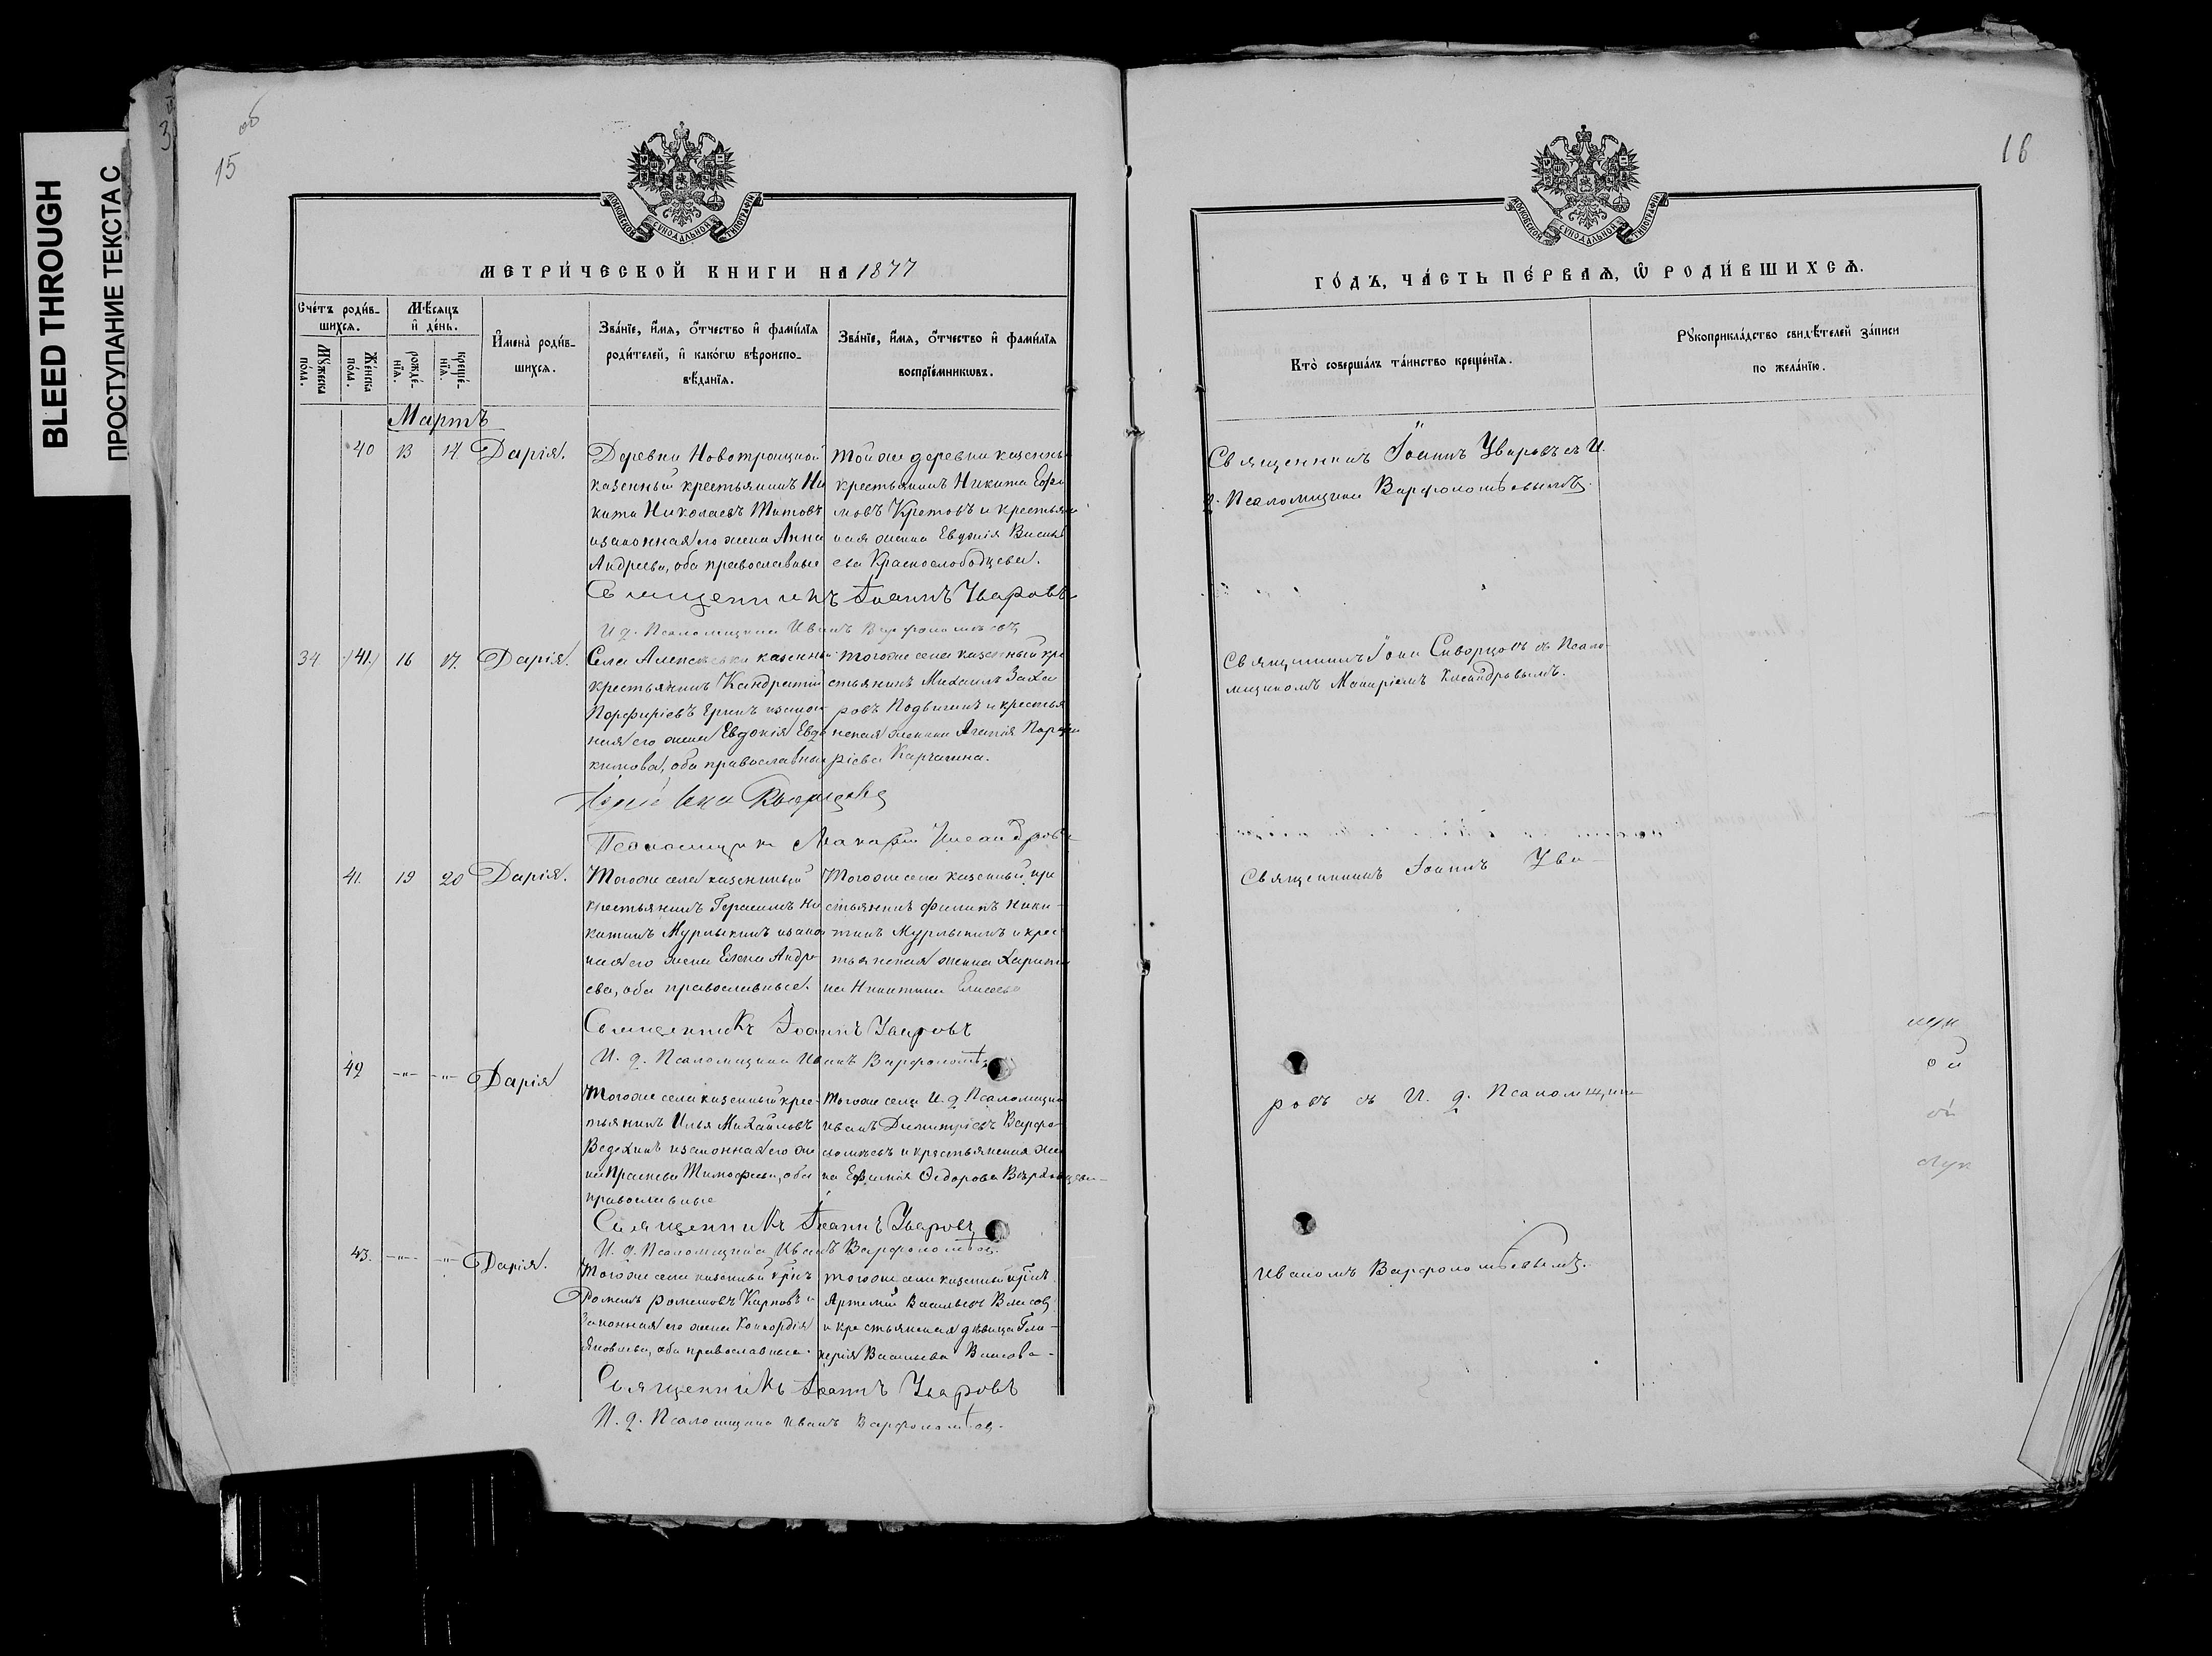 BLEED THROUGH
ПРОСТУПАНИЕ ТЕКСТА С
15
об
МОСКОВСКОЙ СУНОДАЛЬНОЙ ТИПОГРАФІИ
МЕТРИ́ЧЕСКОЙ КНИГИ НА 1877
Сче́тъ роди́в-
шихсѧ.
Мѣ́сѧцъ
и҆ де́нь.
Му́жеска
по́ла.
Же́нска
по́ла.
рожде́-
нїѧ.
креще́-
нїѧ.
И҆мена̀ роди́в-
шихсѧ.
Зва́нїе, и҆́мѧ, ѻ҆́тчество и҆ фами́лїѧ
роди́телей, и҆ како́гѡ вѣроиспо-
вѣ́данїѧ.
Зва́нїе, и҆́мѧ, ѻ҆́тчество и҆ фами́лїѧ
воспрїе́мникѡвъ.
Мартъ
40 13 14 Дарія.
Деревни Новотроицкой
казенный крестьянинъ Ни
кита Николаевъ Титовъ
изаконная его жена Анна
Андреева, оба православные
Тойже деревни казенны
крестьянинъ Никита Ефи
мовъ Кретовъ и крестьян
ская женка Евдокія Василь
ева Краснослободцева.
Священникъ Іоаннъ Уваровъ
И д. Псаломщика Иванъ Варфоломѣевъ
34 /41/ 16 17. Дарія.
Села казенный
крестьянинъ Кандратій
Порфиріевъ изакон
ная его жена Евдокія Евдо
кимова, оба православны
Тогоже села казенный кре
стьянинъ Михаилъ Заха
ровъ Подвигинъ и крестья
нская женка Агапія Порфи
ріева Карчагина.
Псаломщикъ Макарій
41. 19 20 Дарія.
Тогоже села казенный
крестьянинъ Герасимъ Ни
китинъ Мурлыкинъ изакон
ная его жена Елена Андре
ева, оба православные.
Тогоже села казенный кре
стьянинъ Филипъ Ники-
тинъ Мурлыкинъ и крес
тьянская женка Харити
на Никитина Елисеева
Священникъ Іоаннъ Уваровъ
И. д. Псаломщика Иванъ Варфоломѣевъ
42 -"- -"- Дарія
Тогоже села казенный крес-
тьянинъ Илья Михайловъ
Ведехинъ изаконная его же
на Прасковья Тимофеева, оба
православные
Тогоже села И. д Псаломщика
Иванъ Димитріевъ Варфо-
ломѣевъ и крестьянская жен
ка Ефимія Федорова
Священникъ Іоаннъ Уваровъ
И. д. Псаломщика Иванъ Варфоломѣевъ.
43. -"- -"- Дарія.
Тогоже села казенный кр-нъ
Романъ Романовъ Карповъ и
законная его жена Конкордія
Яковлева, оба православные.
Тогоже села казенный кр-нъ
Артемій Васильевъ Власовъ
и крестьянская дѣвица Гли-
керія Васильева Власова-
Священникъ Іоаннъ Уваровъ
И. д. Псаломщика Иванъ Варфоломѣевъ.
16
МОСКОВСКОЙ СУНОДАЛЬНОЙ ТИПОГРАФІИ
ГО́ДЪ, ЧА́СТЬ ПЕ́РВАѦ, Ѡ҆ РОДИ́ВШИХСѦ.
Кто̀ соверша́лъ та́инство креще́нїѧ.
Рꙋкоприкла́дство свидѣ́телей за́писи
по жела́нїю.
Священникъ Іоаннъ Уваровъ съ И.
д. Псаломщика Варфоломѣевымъ.
Священникъ Іоан Скворцовъ съ Псало-
мщикомъ Макаріемъ
Священникъ Іоаннъ Ува-
ровъ съ И. д. Псаломщика
Иваномъ Варфоломѣевымъ.